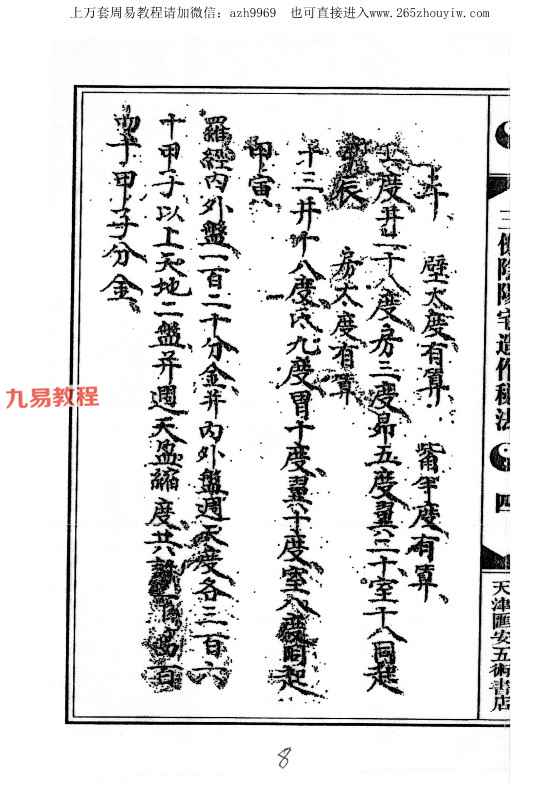 上万套周易教程请加微信：azh9969 也可直接进入www.265zhouyiw.com
三僚陰陽宅造作秘法
四
天津匯安五術書店
壁太度有算 觜半度有算
度井二十八度房三度昴五度翼二十室十八同起
辰 房太度有算
十三井十八度氐九度胃十度翼十度室八度同起
甲寅
羅經內外盤一百二十分金并內外盤週天度各三百六
十甲子以上天地二盤并週天盈縮度共
四十甲子分金
九易教程
8